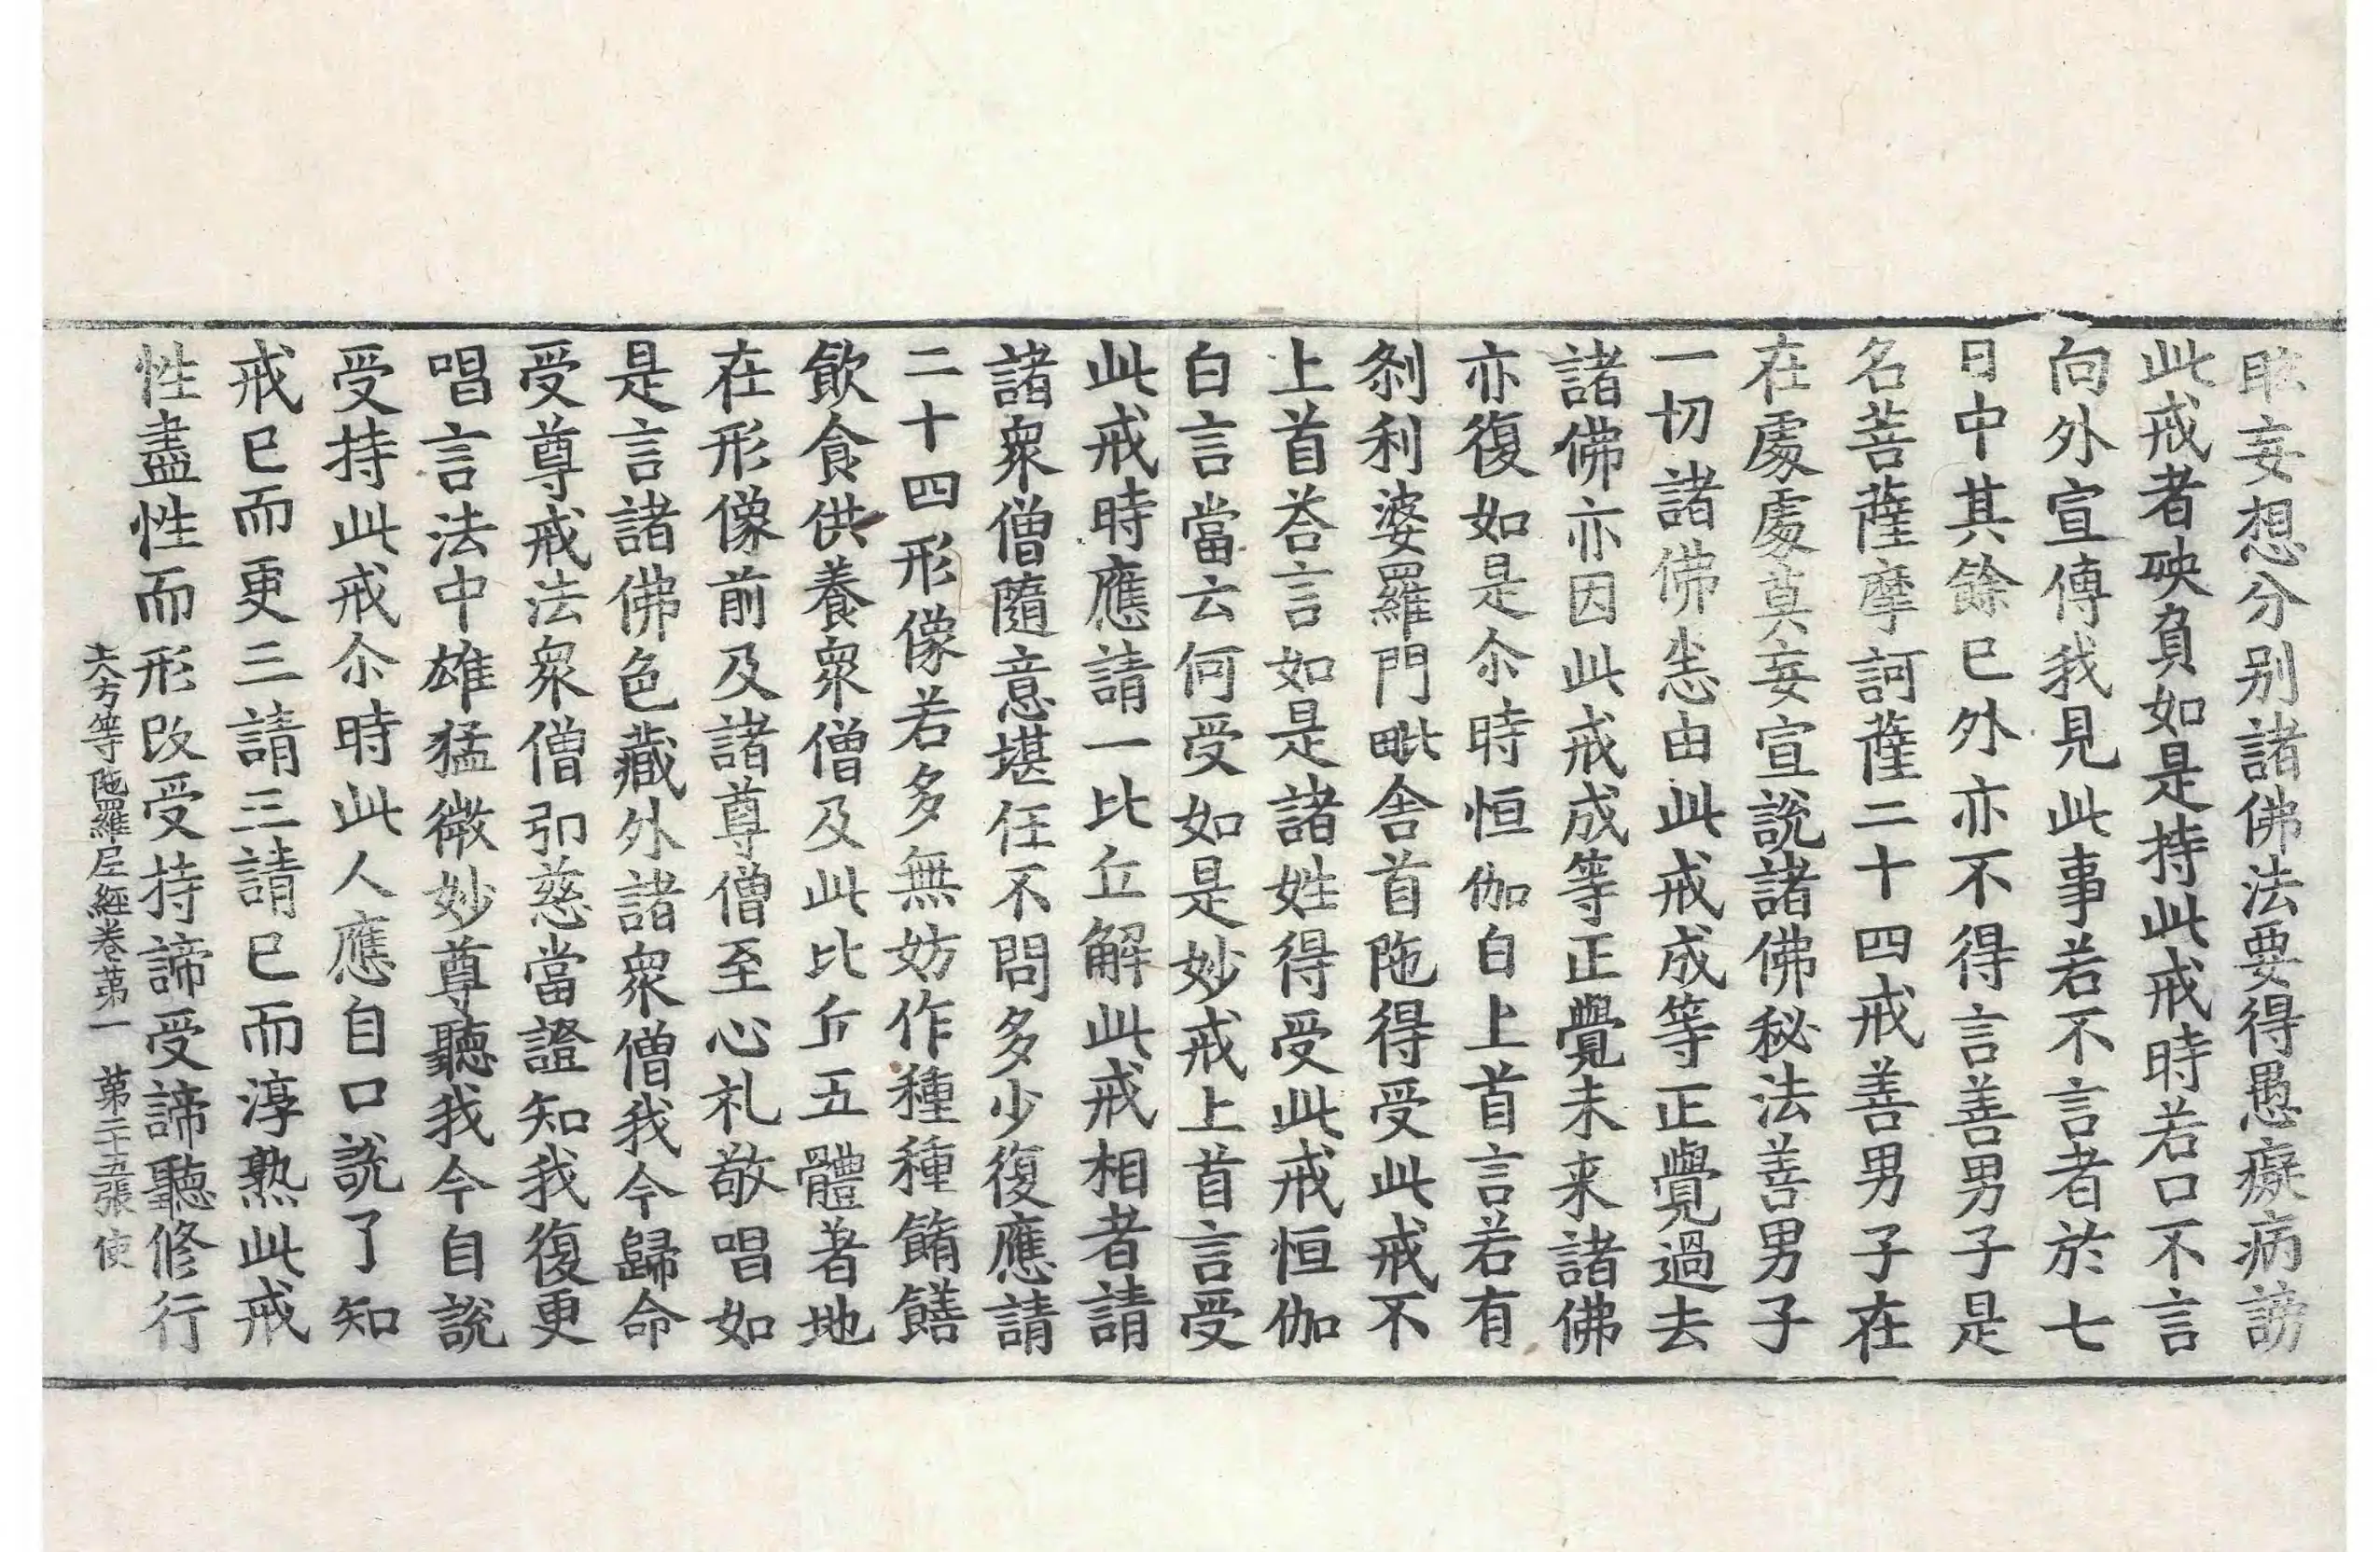 眂妄想分別諸佛法要得愚癡病謗
此戒者殃負如是持此戒時若口不言
向外宣傳我見此事若不言者於七
日中其餘巳外亦不得言善男子是
名菩薩摩訶薩二十四戒善男子在
在處處莫妄宣說諸佛秘法善男子
一切諸佛悉由此戒成等正覺過去
諸佛亦因此戒成等正覺未来諸佛
亦復如是尒時恒伽白上首言若有
剎利婆羅門毗舍首陁得受此戒不
上首荅言如是諸姓得受此戒恒伽
白言當云何受如是妙戒上首言受
此戒時應請一比丘解此戒相者請
諸衆僧隨意堪任不問多少復應請
二十四形像若多無妨作種種餚饍
飲食供養衆僧及此比丘五體著地
在形像前及諸尊僧至心礼敬唱如
是言諸佛色藏外諸衆僧我今歸命
受尊戒法衆僧引慈當證知我復更
唱言法中雄猛微妙尊聽我今自說
受持此戒尒時此人應自口說了知
戒巳而更三請三請巳而淳熟此戒
性盡性而形改受持諦受諦聽修行
大方等陁羅尼經卷苐一　苐二十五張　使